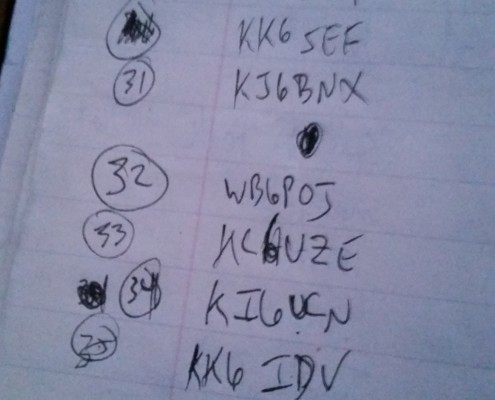 KK6 SEF
31 KJ6BNX
32 WB6POJ
33 KC6UZE
34 KI6UCN
35 KK6 IDV